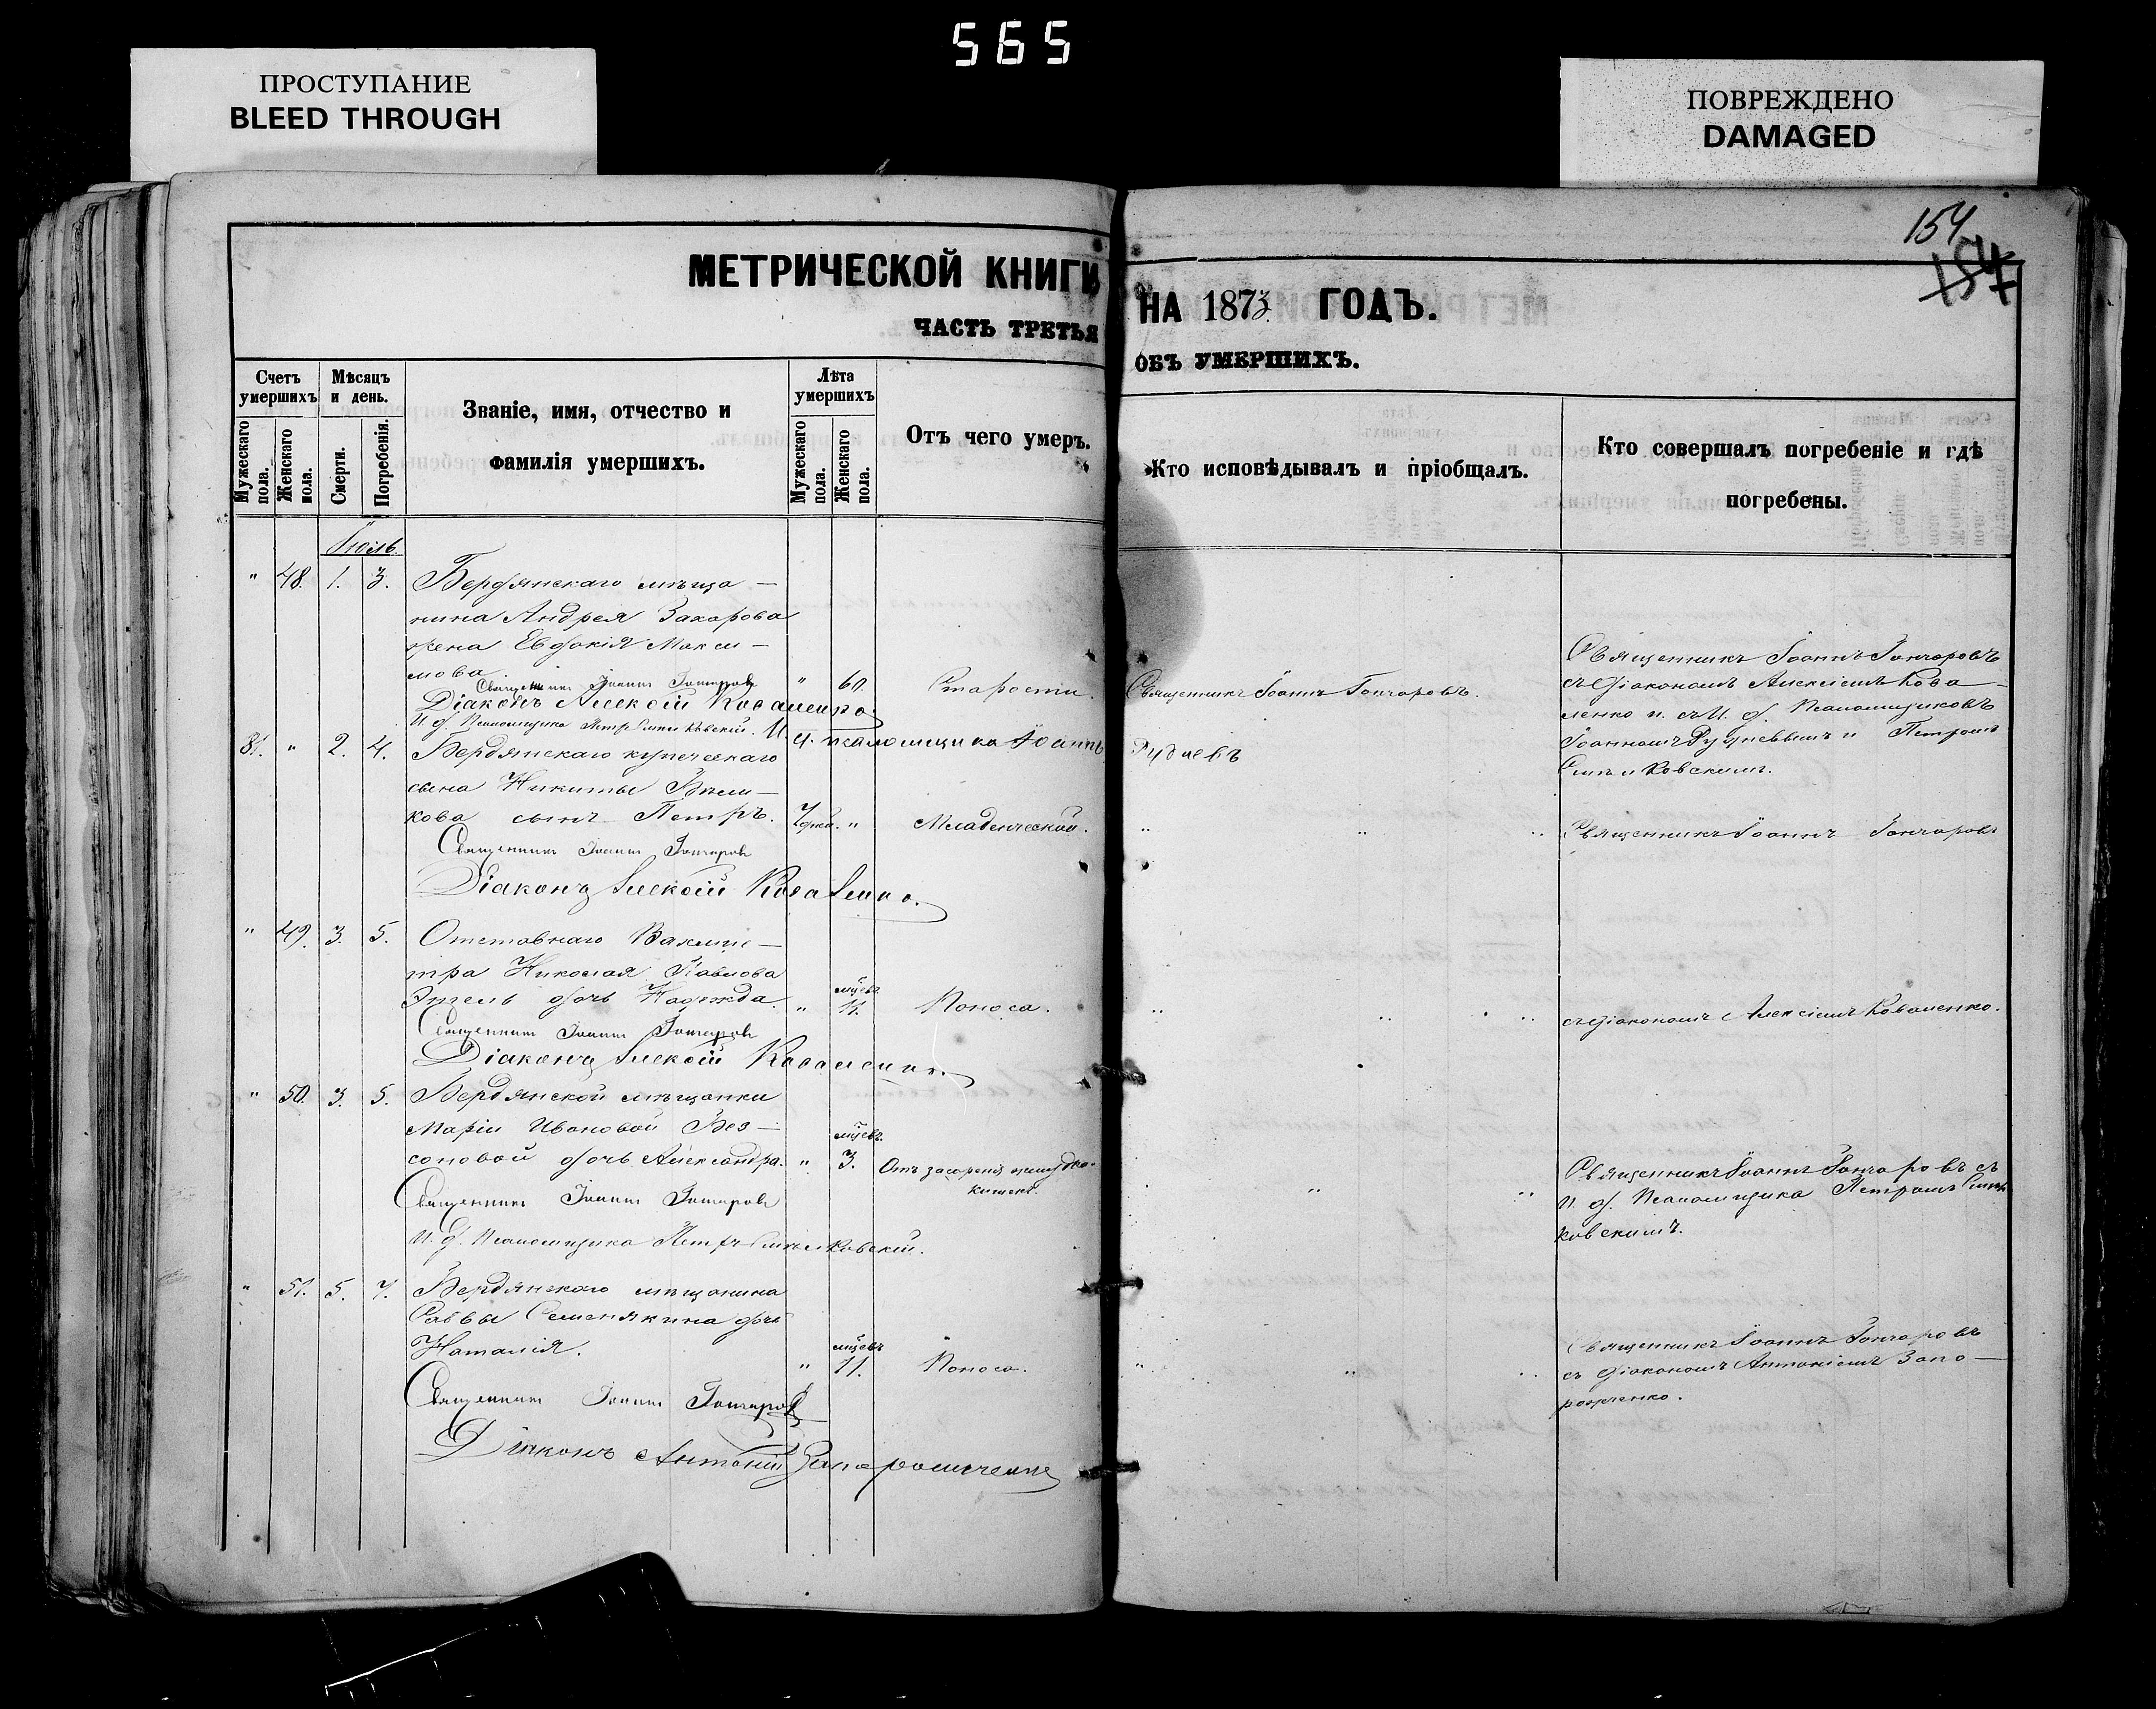 565
ПРОСТУПАНИЕ
BLEED THROUGH
ПОВРЕЖДЕНО
DAMAGED
154
154
МЕТРИЧЕСКОЙ КНИГИ НА 1873 ГОДЪ.
ЧАСТЬ ТРЕТЬЯ ОБЪ УМЕРШИХЪ.
Счетъ умершихъ
Мужескаго пола.
Женскаго пола.
Мѣсяцъ и день.
Смерти.
Погребенія.
Званіе, имя, отчество и
фамилія умершихъ.
Лѣта умершихъ
Мужескаго пола.
Женскаго пола.
Отъ чего умеръ.
Кто исповѣдывалъ и пріобщалъ.
Кто совершалъ погребеніе и гдѣ
погребены.
Іюль
" 48. 1. 3. Бердянскаго мѣща-
нина Андрея Захарова
жена Евдокія Макси-
мова. " 60. Старости. Священникъ Іоаннъ Гончаровъ.
Священникъ Іоаннъ Гончаровъ
Діаконъ Алексій Коваленко
И. д. Псаломщика Петръ
И. д. псаломщика Іоаннъ Рудневъ
Священникъ Іоаннъ Гончаровъ
съ Діакономъ Алексіемъ Кова-
ленко и съ И. д. Псаломщиковъ
Іоанномъ Рудневымъ и Петромъ
81. " 2. 4. Бердянскаго купеческаго
сына Никиты
кова сынъ Петръ. " Младенческой. " " " Священникъ Іоаннъ Гончаровъ
Священникъ Іоаннъ Гончаровъ
Діаконъ Алексій Коваленко.
" 49. 3. 5. Отставнаго Вахми-
тра Николая Павлова
дочь Надежда. " мѣсев. 11. Поноса. " " " съ Діакономъ Алексіемъ Коваленко.
Священникъ Іоаннъ Гончаровъ
Діаконъ Алексій Коваленко.
" 50. 3. 5. Бердянской мѣщанки
Маріи Ивановой Без-
соновой дочь Александра. " мѣсев. 3. Отъ засоренія желудко-
кишекъ.
Священникъ Іоаннъ Гончаровъ
И. д. Псаломщика Петръ
Священникъ Іоаннъ Гончаровъ съ
И. д. Псаломщика Петромъ
ковскимъ.
" 51. 5. 7. Бердянскаго мѣщанина
Саввы Семенякина дочь
Наталія. " мѣсевъ 11. Поноса. " " "
Священникъ Іоаннъ Гончаровъ
Діаконъ Антоній Запорожченко
Священникъ Іоаннъ Гончаровъ
съ Діакономъ Антоніемъ Запо-
рожченко.